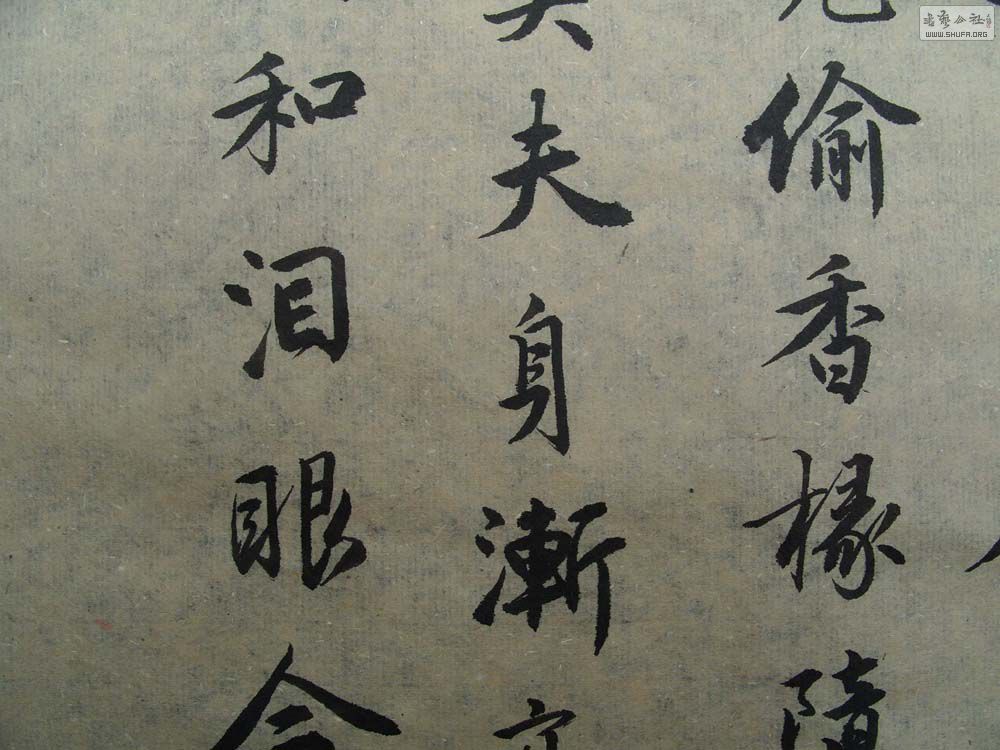 偷香椽
夫身漸
和泪眼
书艺公社
WWW.SHUFA.ORG